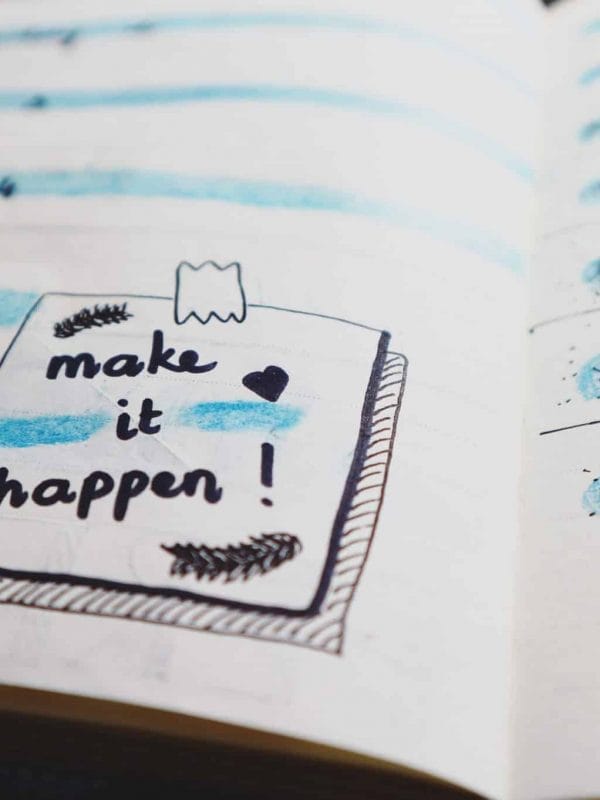 make
it
happen !